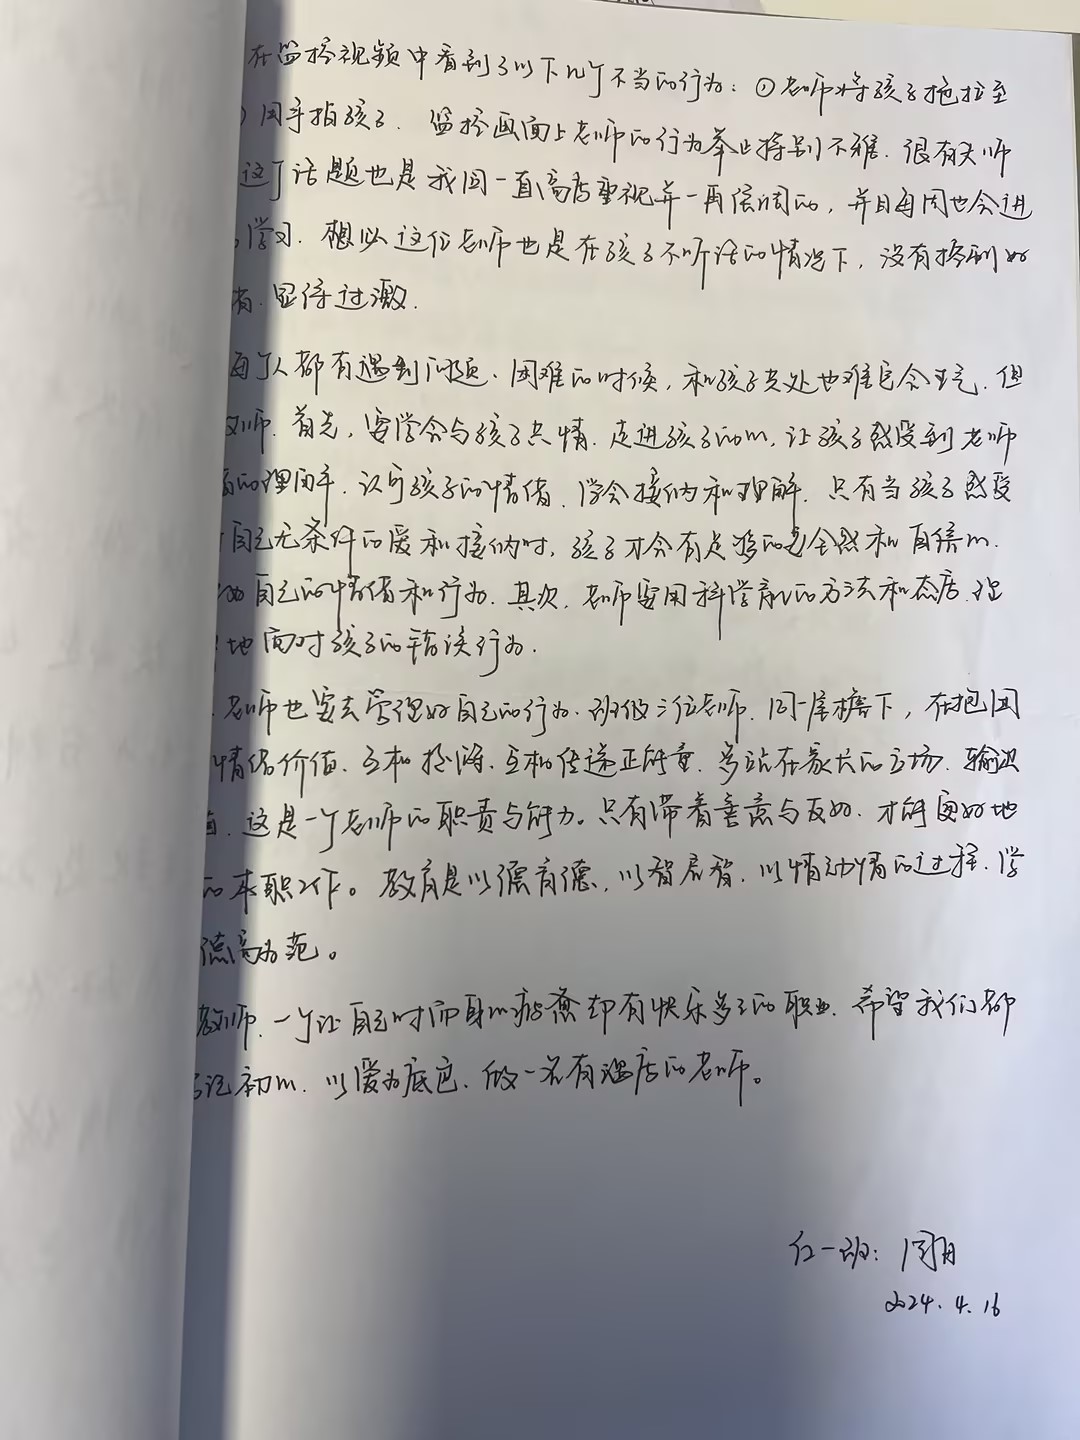 在监控视频中看到了以下几个不当的行为：①老师将孩子拖拉至
）用手指孩子．监控画面上老师的行为举止特别不雅．很有失师
这个话题也是我园一直高度重视并一再强调的，并且每周也会进
学习．想必这位老师也是在孩子不听话的情况下，没有控制好
显得过激．
每个人都有遇到问题、困难的时候，和孩子共处也难免会生气．但
教师．首先，要学会与孩子共情．走进孩子的心，让孩子感受到老师
的理解．认可孩子的情绪．学会接纳和理解．只有当孩子感受
自己无条件的爱和接纳时，孩子才会有足够的安全感和自信心．
自己的情绪和行为．其次．老师要用科学的方法和态度．理
地面对孩子的错误行为．
老师也要去管理好自己的行为．班级三位老师．同一屋檐下，在抱团
情绪价值．互相 互相传递正能量．多站在家长的立场．输出
这是一个老师的职责与能力。只有带着善意与友好．才能更好地
的本职工作。教育是以德育德，以智启智．以情动情的过程．学
德高为范。
教师．一个让自己时而身心疲惫却有快乐多多的职业．希望我们都
记初心．以爱为底色．做一名有温度的老师。
红一班：周月
2024.4.16